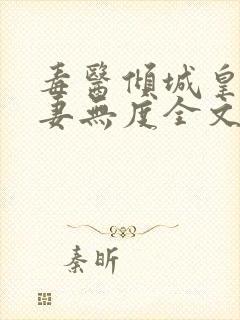 毒醫傾城皇
妻無度全文
秦昕